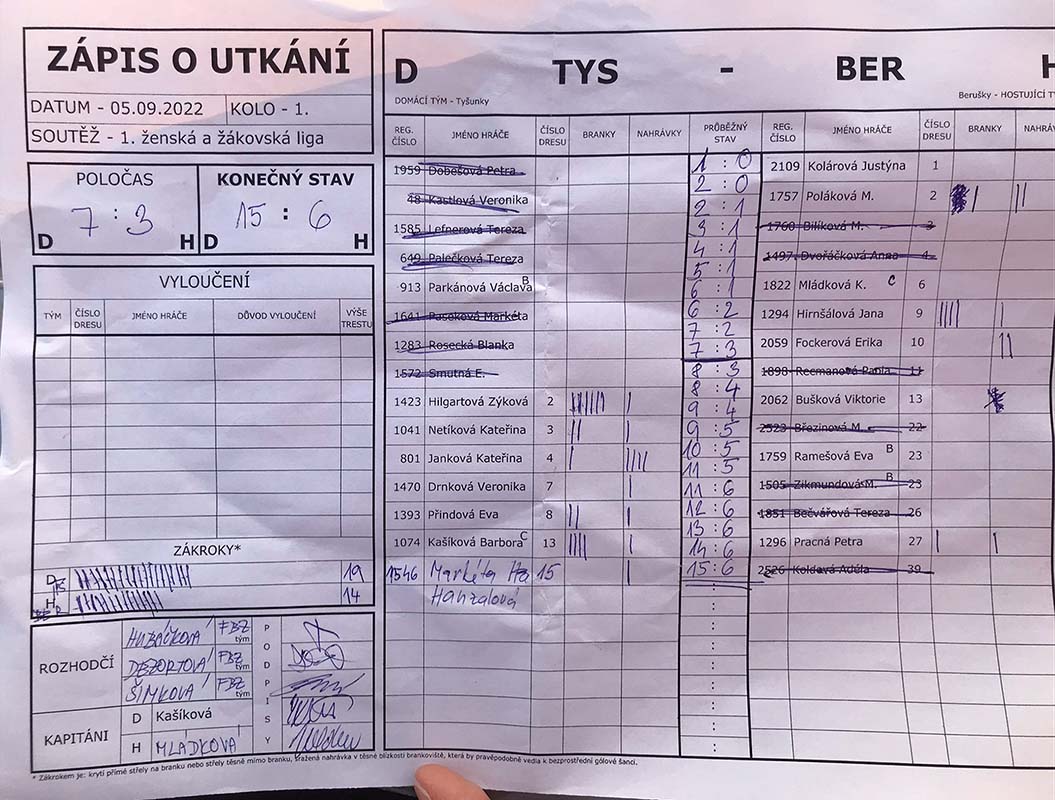 ZÁPIS O UTKÁNÍ
DATUM - 05.09.2022 KOLO - 1.
SOUTĚŽ - 1. ženská a žákovská liga
POLOČAS KONEČNÝ STAV
7 : 3 15 : 6
D H D H
VYLOUČENÍ
TÝM ČÍSLO DRESU JMÉNO HRÁČE DŮVOD VYLOUČENÍ VÝŠE TRESTU
ZÁKROKY*
D 19
H 14
ROZHODČÍ
HUBÁČKOVÁ FBZ tým
DEZORTOVÁ FBZ tým
ŠIMKOVÁ FBZ tým
KAPITÁNI
D Kašíková
H MLÁDKOVÁ
PODPISY
* Zákrokem je: krytí přímé střely na branku nebo střely těsně mimo branku, sražená nahrávka v těsné blízkosti brankoviště, která by pravěpodobně vedla k bezprostřední gólové šanci.
D TYS - BER H
DOMÁCÍ TÝM - Tyšunky Berušky - HOSTUJÍCÍ
REG. ČÍSLO JMÉNO HRÁČE ČÍSLO DRESU BRANKY NAHRÁVKY PRŮBĚŽNÝ STAV REG. ČÍSLO JMÉNO HRÁČE ČÍSLO DRESU BRANKY
1959 Dobešová Petra
48 Kastlová Veronika
1585 Lefnerová Tereza
649 Palečková Tereza
913 Parkánová Václava B
1641 Paseková Markéta
1283 Rosecká Blanka
1572 Smutná E.
1423 Hilgartová Zýková 2
1041 Netíková Kateřina 3
801 Janková Kateřina 4
1470 Drnková Veronika 7
1393 Přindová Eva 8
1074 Kašíková Barbora C 13
1546 Markéta 15
Hanzalová
1 : 0
2 : 0
2 : 1
3 : 1
4 : 1
5 : 1
6 : 1
6 : 2
7 : 2
7 : 3
8 : 3
8 : 4
9 : 4
9 : 5
10 : 5
11 : 5
11 : 6
12 : 6
13 : 6
14 : 6
15 : 6
2109 Kolárová Justýna 1
1757 Poláková M. 2
1760 Bílíková M. 3
1497 Dvořáčková Anna 4
1822 Mládková K. C 6
1294 Hirnšálová Jana 9
2059 Fockerová Erika 10
1898 Recmanová Pavla 11
2062 Bušková Viktorie 13
2523 Březinová M. 22
1759 Ramešová Eva B 23
1505 Zikmundová M. B 23
1851 Bečvářová Tereza 26
1296 Pracná Petra 27
2526 Koldová Adéla 39